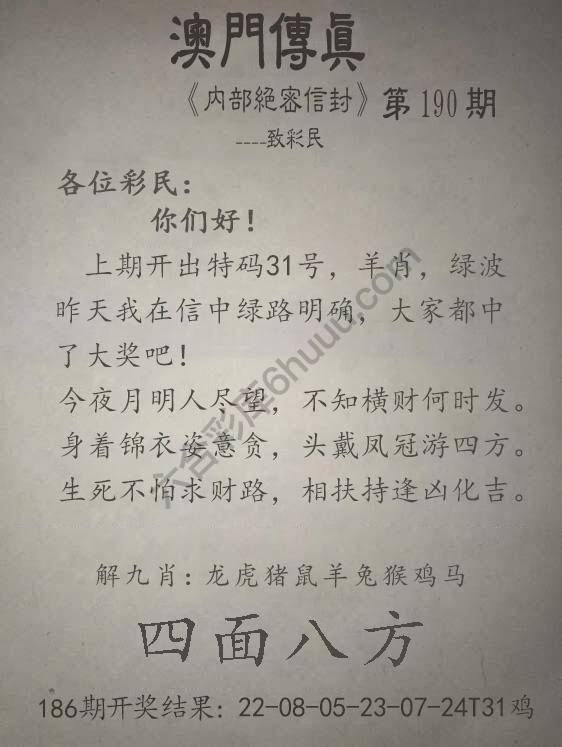 澳門傳眞
《内部絕密信封》第190期
----致彩民
各位彩民：
你们好！
上期开出特码31号，羊肖，绿波
昨天我在信中绿路明确，大家都中
了大奖吧！
今夜月明人尽望，不知横财何时发。
身着锦衣姿意贪，头戴凤冠游四方。
生死不怕求财路，相扶持逢凶化吉。
六合彩库6huuu.com
解九肖：龙虎猪鼠羊兔猴鸡马
四面八方
186期开奖结果：22-08-05-23-07-24T31鸡